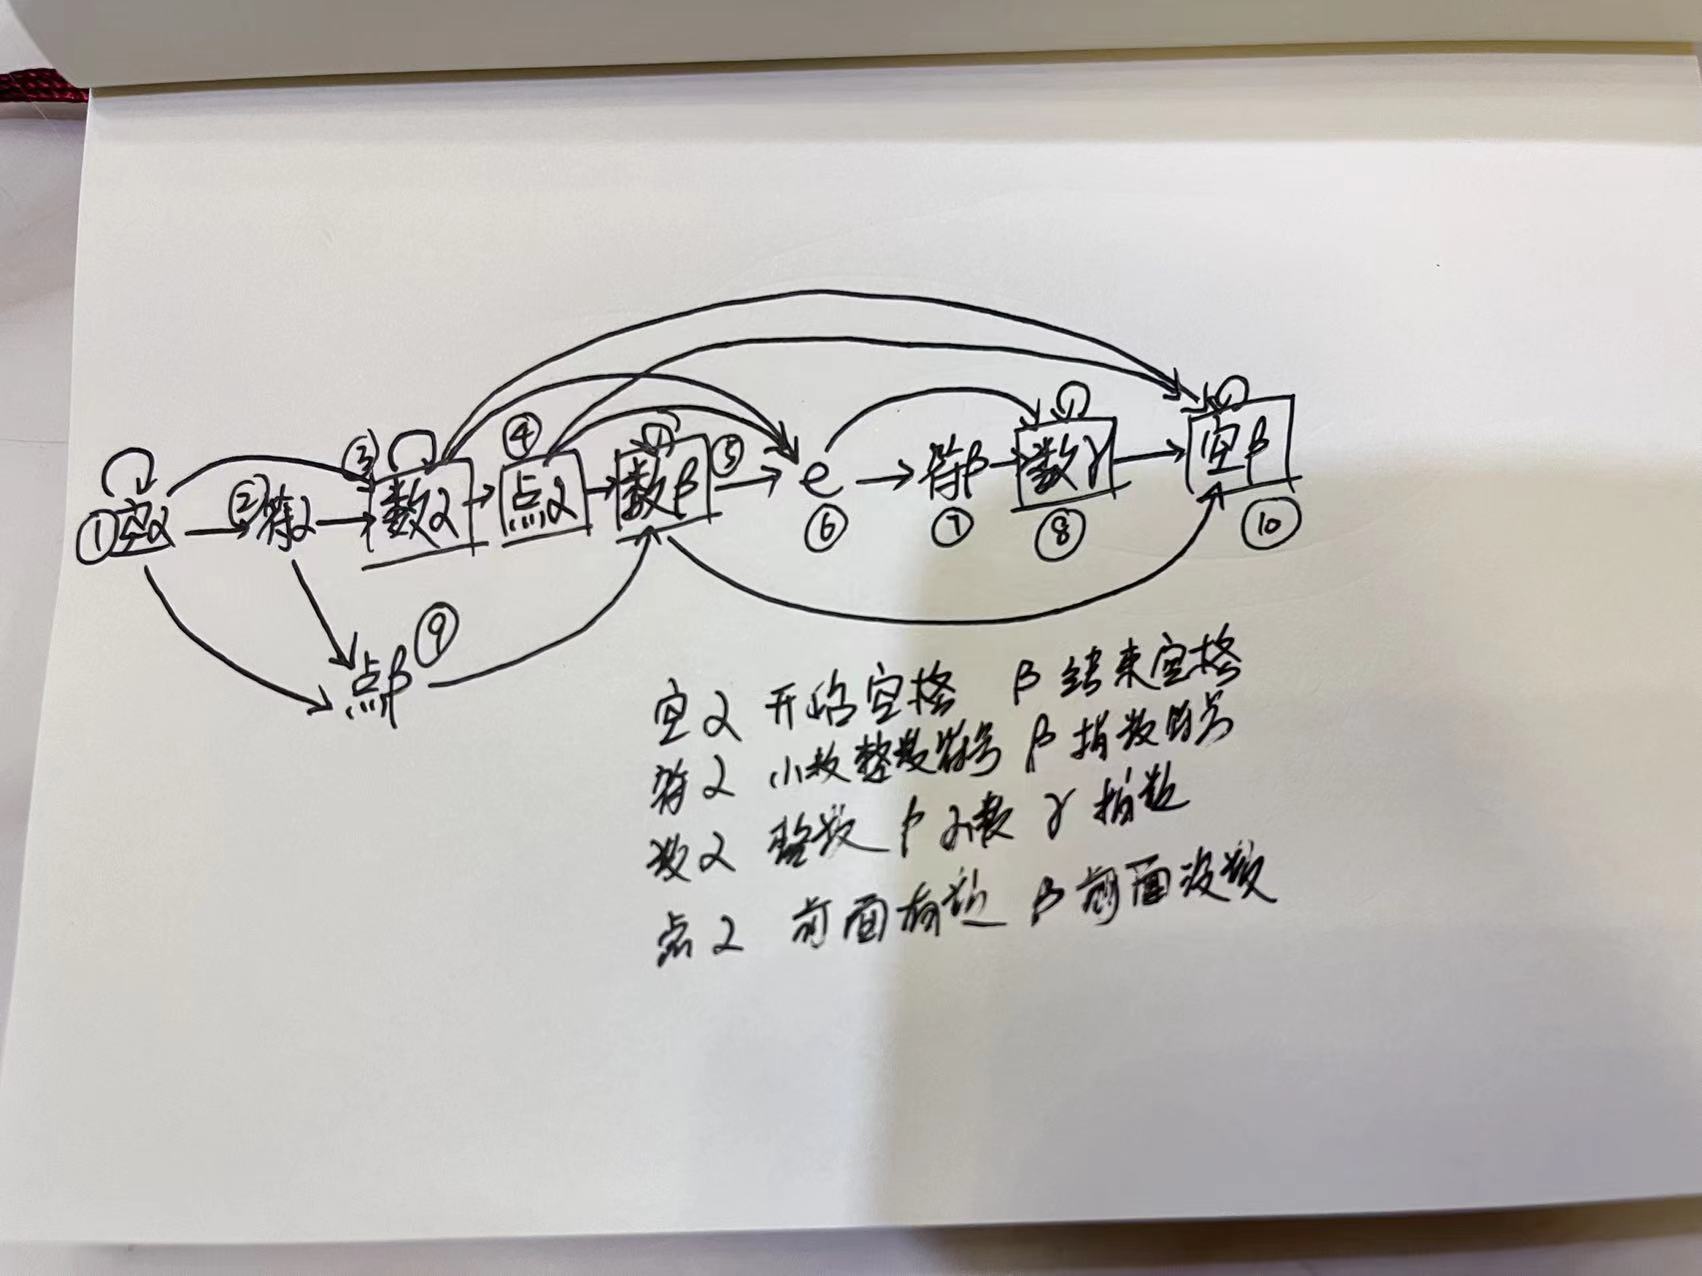 ③ ④
①空α ②符α 数α 点α 数β ⑤ e 符β 数γ 空β
⑥ ⑦ ⑧ ⑩
点β ⑨
空α 开始空格 β 结束空格
符α 小数整数符号 β 指数符号
数α 整数 β 小数 γ 指数
点α 前面有数 β 前面没数